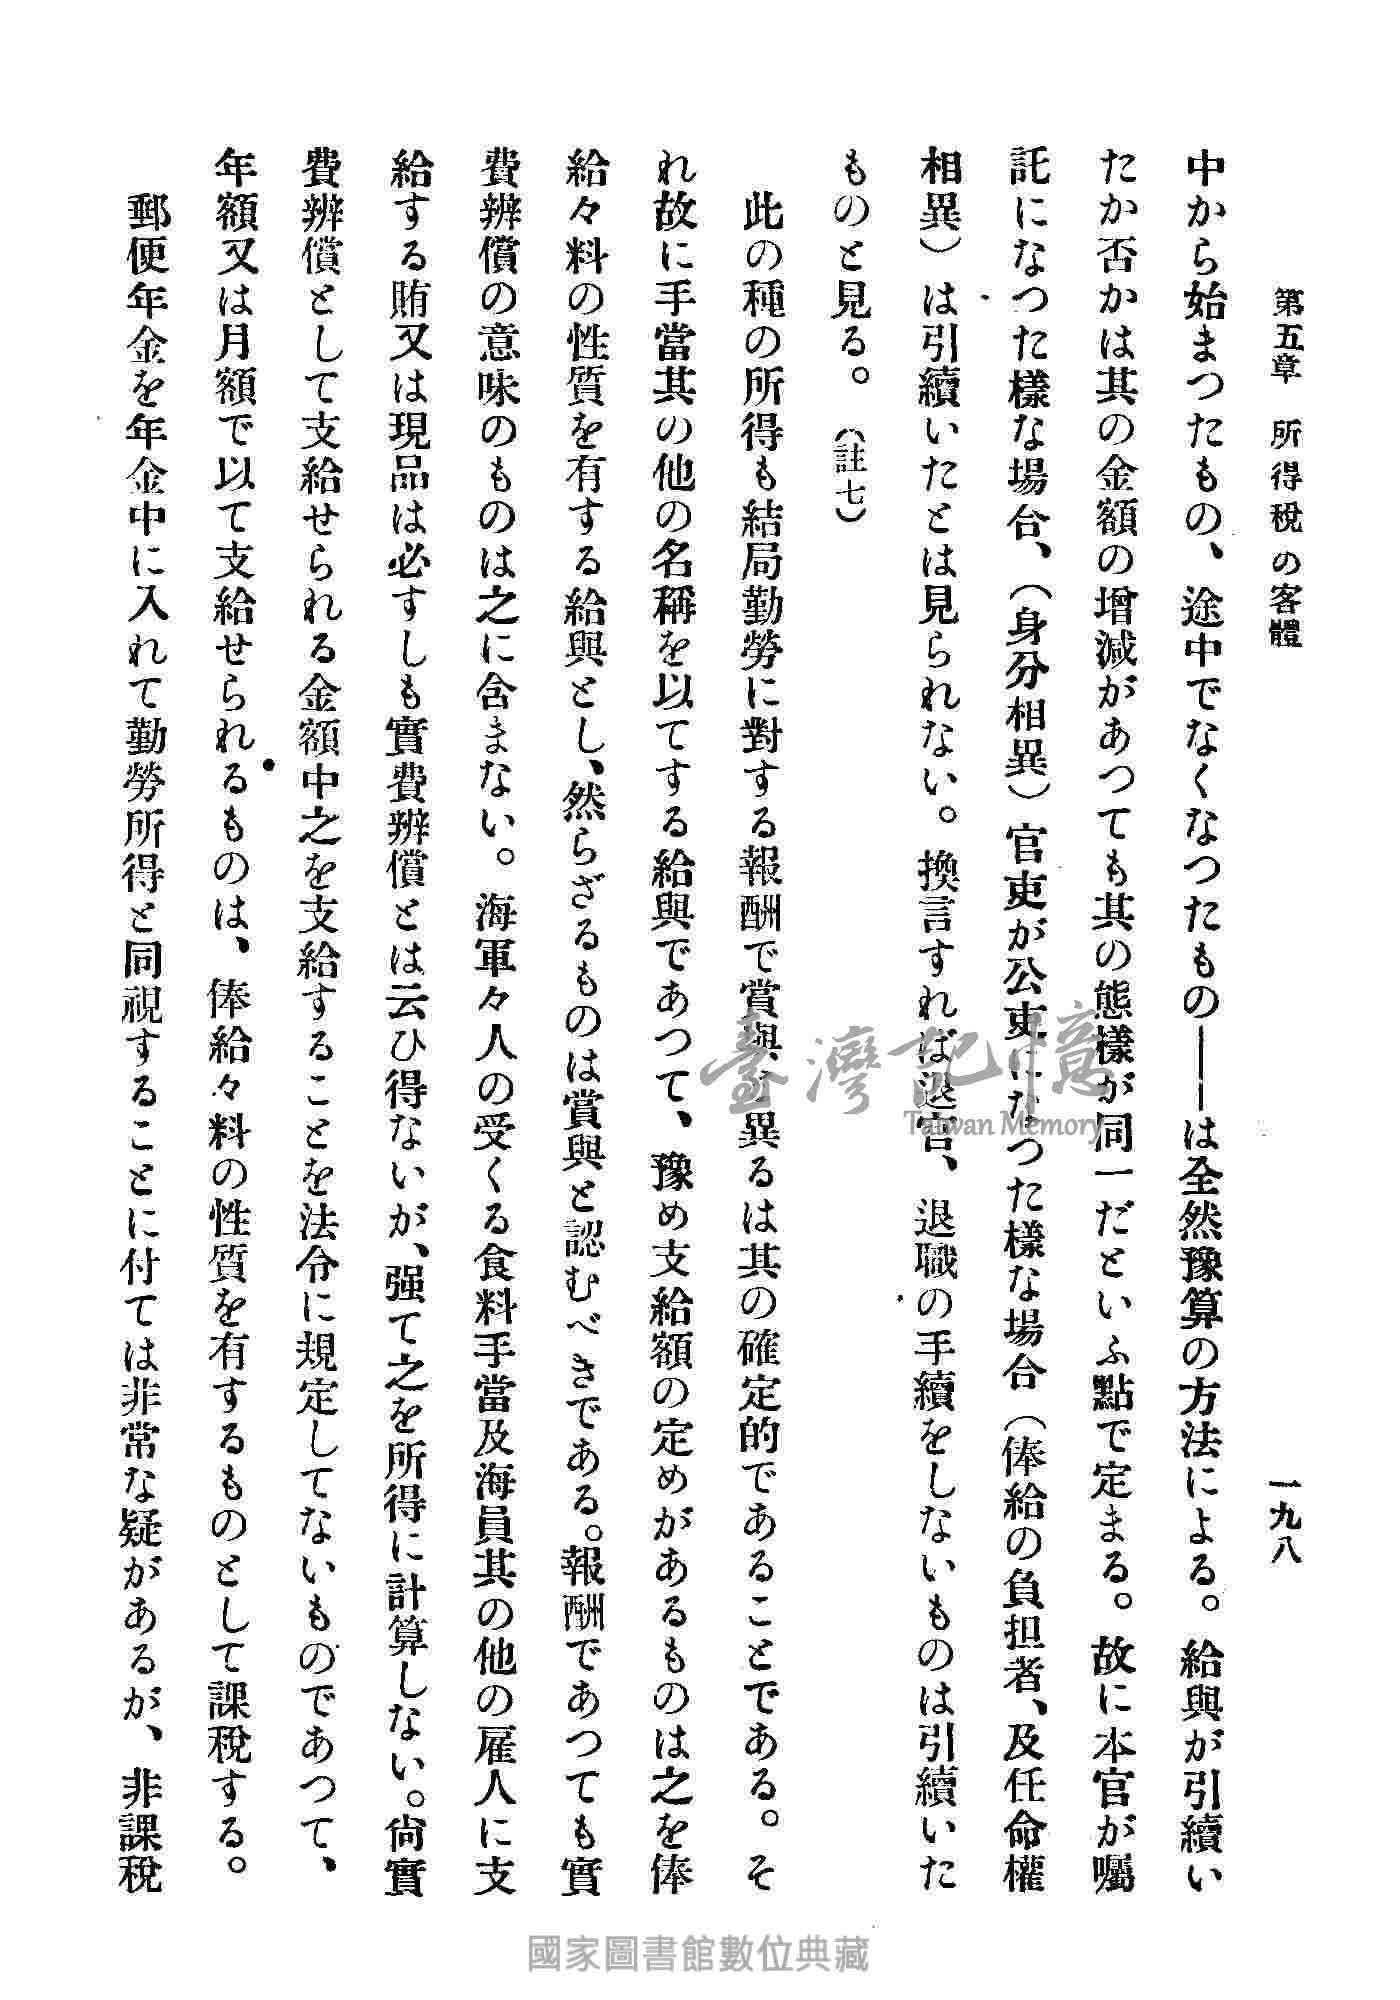 第五章　所得稅の客體
一九八
中から始まつたもの、途中でなくなつたもの——は全然豫算の方法による。給與が引續い
たか否かは其の金額の增減があつても其の態樣が同一だといふ點で定まる。故に本官が囑
託になつた樣な場合、（身分相異）官吏が公吏になつた樣な場合（俸給の負担者、及任命權
相異）は引續いたとは見られない。換言すれば退官、退職の手續をしないものは引續いた
ものと見る。（註七）
此の種の所得も結局勤勞に對する報酬で賞與と異るは其の確定的であることである。そ
れ故に手當其の他の名稱を以てする給與であつて、豫め支給額の定めがあるものは之を俸
給々料の性質を有する給與とし、然らざるものは賞與と認むべきである。報酬であつても實
費辨償の意味のものは之に含まない。海軍々人の受くる食料手當及海員其の他の雇人に支
給する賄又は現品は必すしも實費辨償とは云ひ得ないが、强て之を所得に計算しない。尙實
費辨償として支給せられる金額中之を支給することを法令に規定してないものであつて、
年額又は月額で以て支給せられるものは、俸給々料の性質を有するものとして課稅する。
郵便年金を年金中に入れて勤勞所得と同視することに付ては非常な疑があるが、非課稅
臺灣記憶
Taiwan Memory
國家圖書館數位典藏